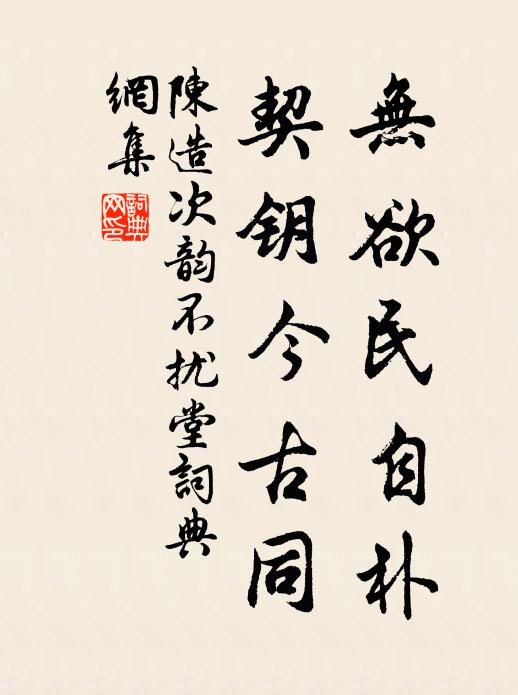 無欲民自朴
契钥今古同
陳造次韵不扰堂詞典
網集
詞典
网印